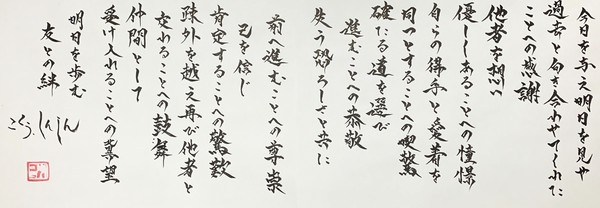 今日を与え明日を見せ
過去と向き合わせてくれた
ことへの感謝
他者を想い
優しくあることへの憧憬
自らの得手と愛着を
同一とすることへの喫驚
確たる道を選び
進むことへの恭敬
失う恐ろしさと共に
前へ進むことへの尊崇
己を信じ
肯定することへの驚歎
疎外を越え再び他者と
交わることへの鼓舞
仲間として
受け入れることへの冀望
明日を歩む
友との絆
こくう しんしん